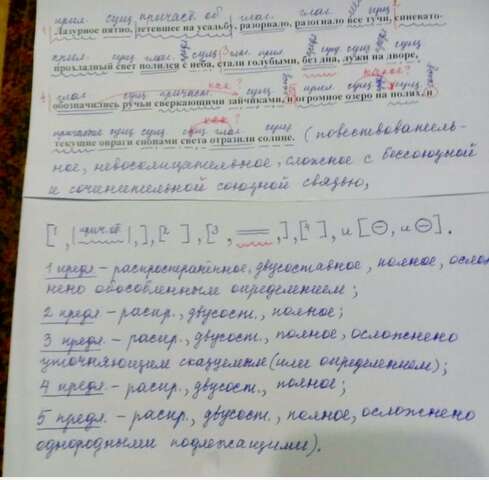 прил. сущ. причаст. об. глаг. глаг. сущ.
Лазурное пятно, летевшее на усадьбу, разорвало, разогнало все тучи, синевато-
сущ. глаг. сущ. прил.
прохладный свет полился с неба, стали голубыми, без дна, лужи на дворе,
глаг. сущ. причаст. как? какое?
обозначились ручьи сверкающими зайчиками, и огромное озеро на полях, и
причастие сущ. сущ. как? глаг. сущ.
текущие овраги снопами света отразили солнце. (повествователь-
ное, невосклицательное, сложное с бессоюзной
и сочинительной союзной связью,
[1 ,|прич.об.|,],[2 ],[3 , ,],[4 ], и [⊖, и ⊖].
1 предл. – распространённое, двусоставное, полное, ослож-
нено обособленным определением;
2 предл. – распр., двусост., полное;
3 предл. – распр., двусост., полное, осложнено
уточняющим сказуемым (или определением);
4 предл. – распр., двусост., полное;
5 предл. – распр., двусост., полное, осложнено
однородными подлежащими).